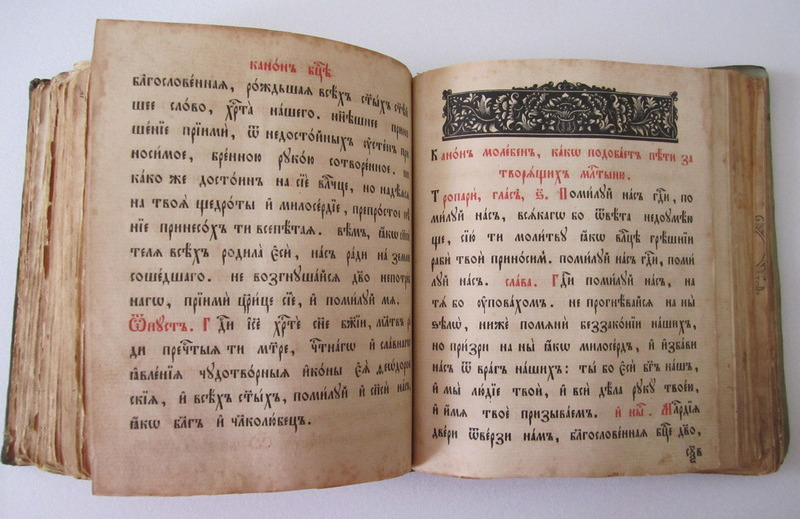 канѡ́нъ бц҃ѣ
блгⷭ҇ове́нная, ро́ждьшая всѣ́хъ ст҃ы́хъ ст҃ѣ́й
шее сло́во, хрⷭ҇та̀ на́шего. нн҃ѣшнее прино
ше́нїе прїимѝ, ѿ недосто́йныхъ ᲂу҆сте́нъ при
носи́мое, бре́нною рᲂуко́ю сотворе́нное.
ка́ко же досто́ин на сїѐ влⷣчце, но надѣ́ѧсѧ
на твоѧ̀ щедро́ты и҆ милосе́рдїе, препросто́е
нїе принесо́хъ ти всепѣ́таѧ. вѣ́мъ, ꙗ҆́кѡ сп҃си
телѧ всѣ́хъ родила̀ є҆сѝ, на́съ ра́ди на зе́млю
соше́дшаго. не возгнᲂуша́йсѧ дв҃о непотре́
наго, прїимѝ цр҃и́це сїѐ, и҆ поми́лᲂуй мѧ.
Ѿпᲂустъ. Гдⷭ҇и і҆с҃е хрⷭ҇тѐ сн҃е бж҃їи, мл҃твъ ра
ди преч҃тыѧ ти мт҃ре, чⷭ҇тна́гѡ и҆ сла́внагѡ
ꙗ҆вле́нїѧ чᲂудотво́рныѧ и҆ко́ны є҆ѧ̀ ѳео́доров
скїѧ, и҆ всѣ́хъ ст҃ы́хъ, поми́лᲂуй и҆ сп҃сѝ на́съ,
ꙗ҆́кѡ бл҃гъ и҆ чл҃колю́бецъ.
Кано́нъ моле́бенъ, ка́кѡ подоба́етъ пѣ́ти за
творѧ́щихъ млⷭ҇тыню.
Тропарѝ, гла́съ, ѕ҃. Поми́лᲂуй на́съ гдⷭ҇и, по
ми́лᲂуй на́съ, всѧ́кагѡ бо ѿвѣ́та недоᲂумѣ́ю
ще, сїю̀ ти моли́твᲂу ꙗ҆́кѡ влⷣцѣ грѣ́шнїи
рабѝ твоѝ прино́сим. поми́лᲂуй на́съ гдⷭ҇и, поми
лᲂуй на́съ. сла́ва. Гдⷭ҇и поми́лᲂуй на́съ, на
тѧ́ бо ᲂу҆пова́хомъ. не прогнѣ́вайсѧ на ны̀
ѕѣлѡ̀, нижѐ помѧнѝ беззако́нїи на́шихъ,
но при́зри на ны̀ ꙗ҆́кѡ милосе́рдъ, и҆ и҆зба́ви
на́съ ѿ вра́гъ на́шихъ: ты́ бо є҆сѝ бг҃ъ на́шъ,
и҆ мы̀ лю́дїе твоѝ, и҆ всѝ дѣ́ла рᲂукᲂу̀ твоє́ю,
и҆ и҆́мѧ твоѐ призыва́емъ. и҆ нн҃ѣ. Млⷭ҇рдїѧ
две́ри ѿве́рзи на́мъ, блгⷭ҇ове́нная бц҃е дв҃о,